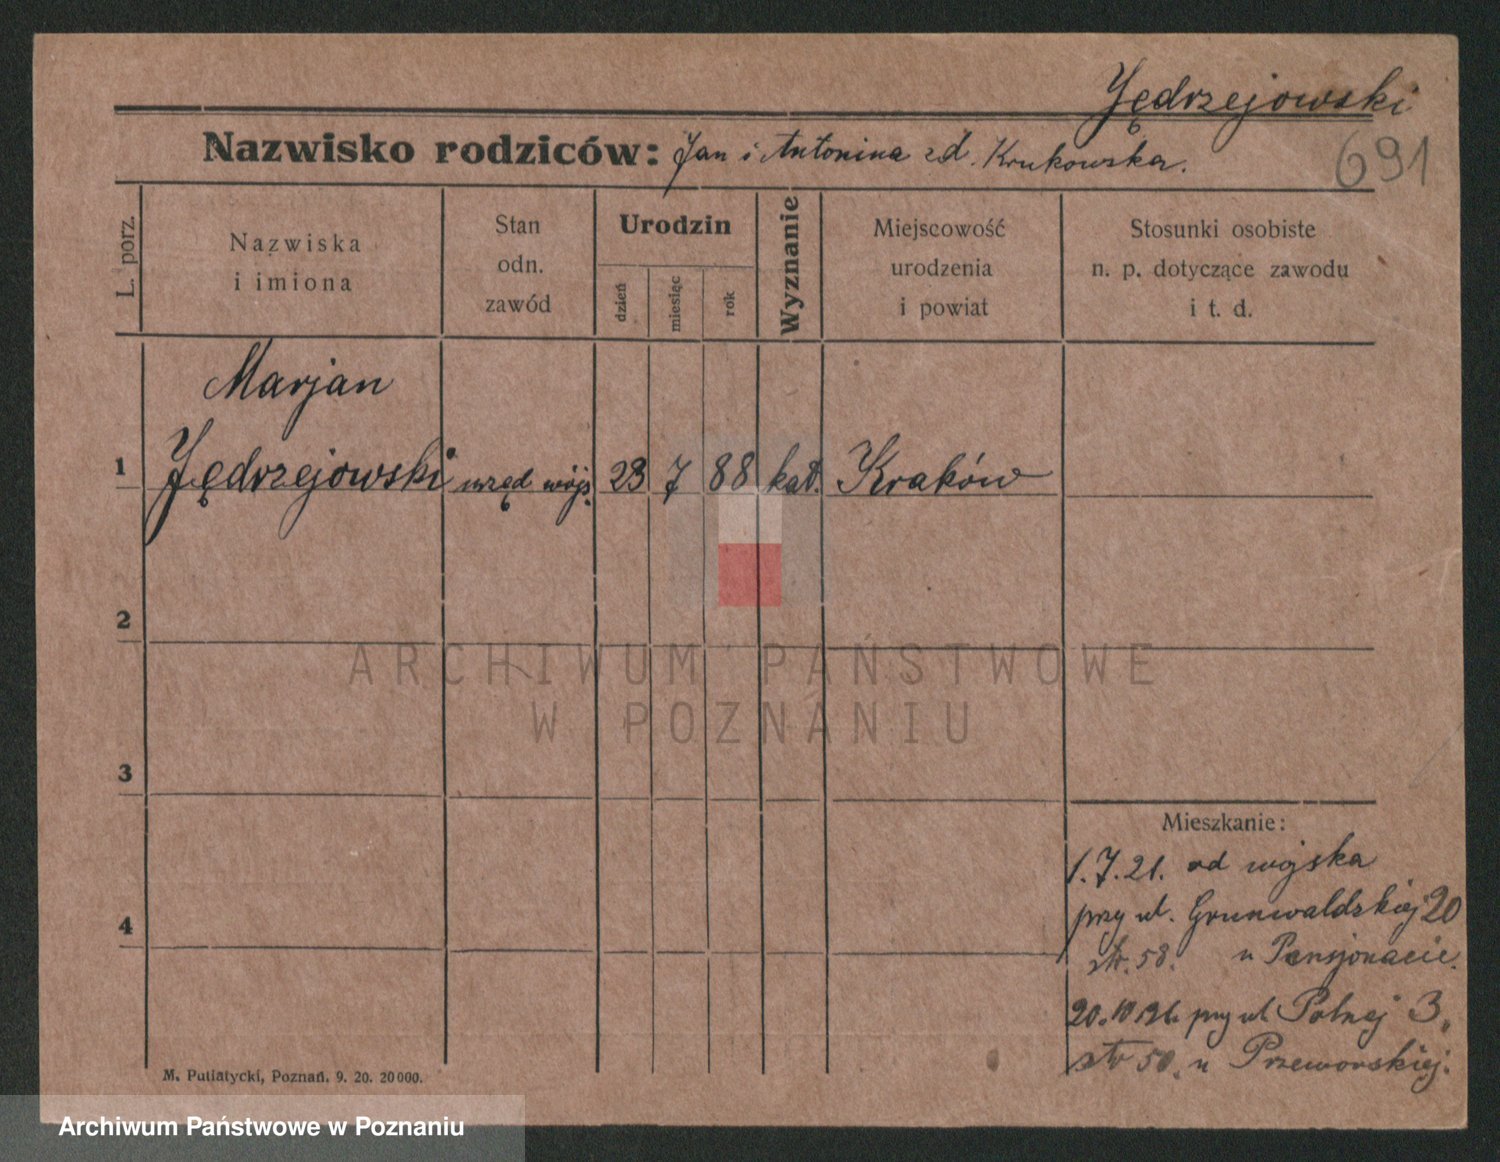 Jędrzejowski
Nazwisko rodziców: Jan i Antonina zd. Krukowska.
691
L. porz.
Nazwiska
i imiona
Stan
odn.
zawód
Urodzin
dzień
miesiąc
rok
Wyznanie
Miejscowość
urodzenia
i powiat
Stosunki osobiste
n. p. dotyczące zawodu
i t. d.
Marjan
1 Jędrzejowski urzęd wojs. 23 7 88 kat. Kraków
2
ARCHIWUM PAŃSTWOWE
W POZNANIU
3
4
Mieszkanie:
1.7.21. od wojska
przy ul. Grunwaldzkiej 20
str. 58. u Pensjonacie.
20.10.21. przy ul Polnej 3,
str 50. u Przeworskiej.
M. Putiatycki, Poznań. 9. 20. 20000.
Archiwum Państwowe w Poznaniu